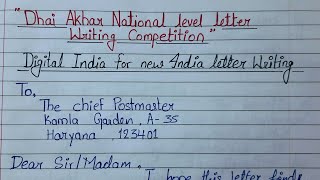 "Dhai Akhar National level letter
Writing Competition"
Digital India for new India letter Writing
To,
The chief Postmaster
Kamla Garden, A-35
Haryana, 123401
Dear Sir/Madam,
I hope this letter finds